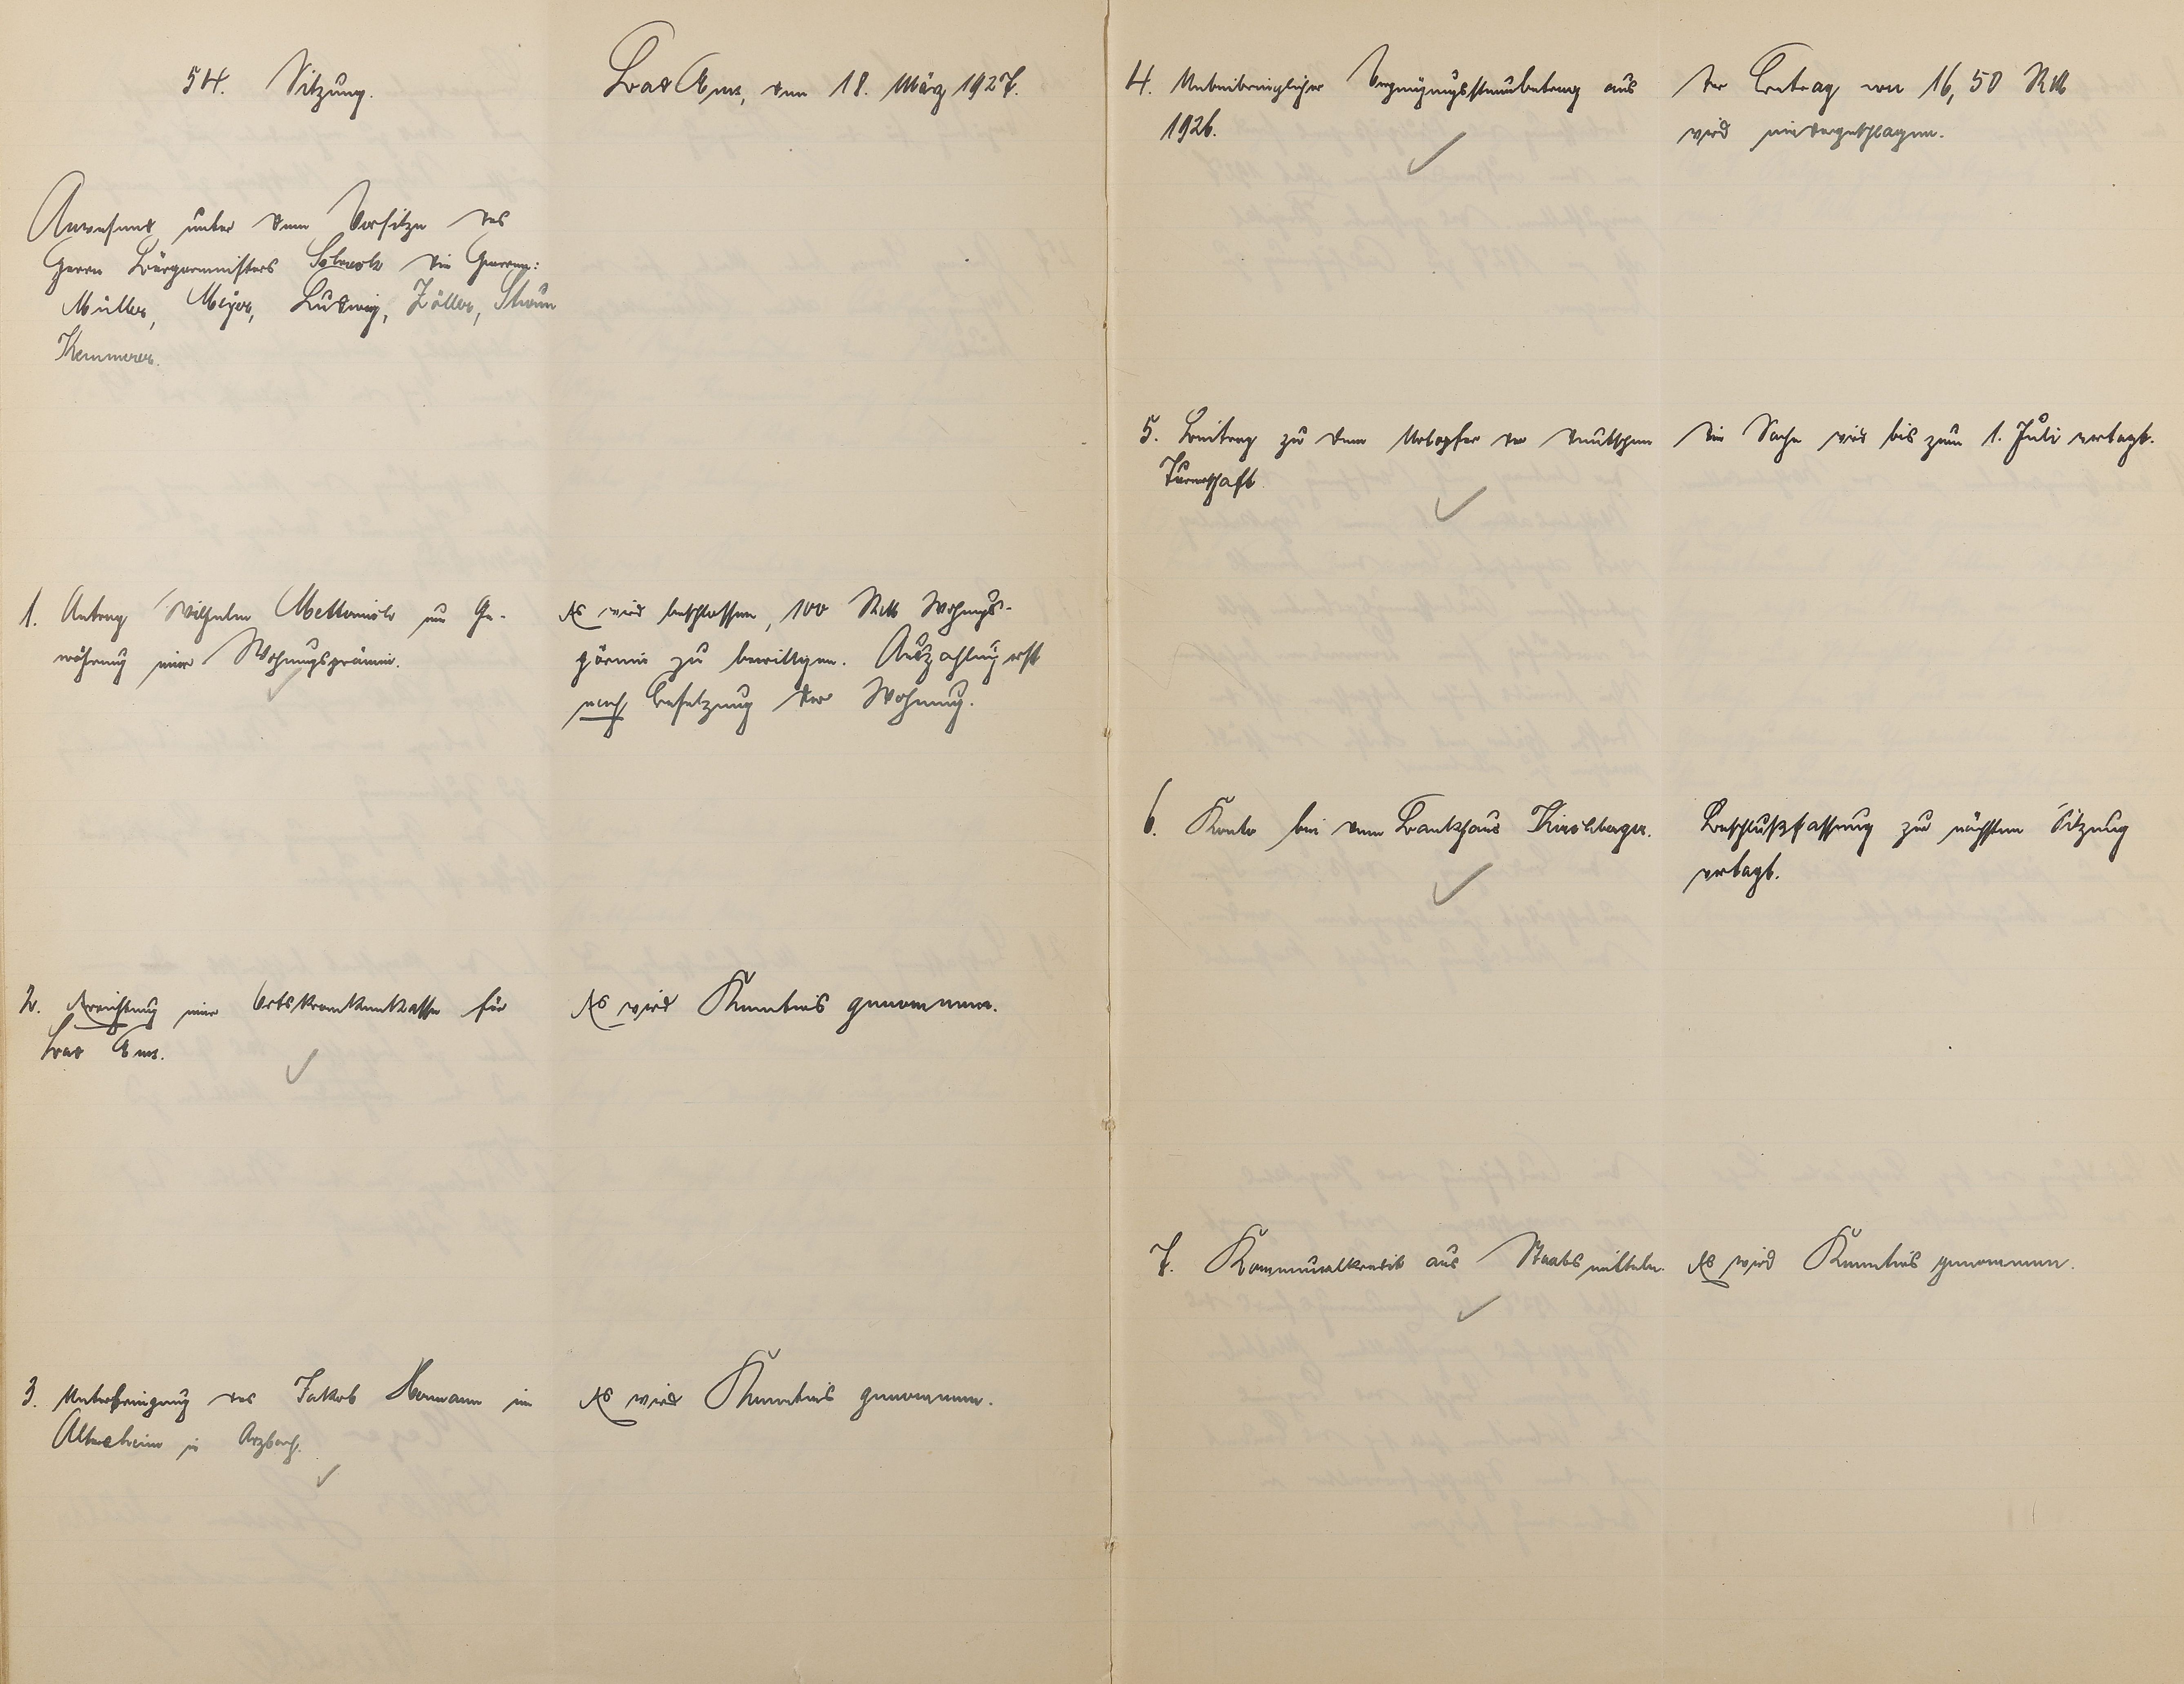 54. Sitzung.
Bad Ems, den 18. März 1927.
Anwesend unter dem Vorsitze des
Herrn Bürgermeisters Schreck die Herren:
Müller, Meyer, Ludwig, Zöller, Thaun
Kemmerer.
1. Antrag Wilhelm um Ge-
währung einer Wohnungsprämie.
Es wird beschlossen, 100 RM Wohnungs-
prämie zu bewilligen. Auszahlung erst
nach Besetzung der Wohnung.
2. Errichtung einer Ortskrankenkasse für
Bad Ems.
Es wird Kenntnis genommen.
3. Unterbringung des Jakob Hermann im
Altersheim in Arzbach.
Es wird Kenntnis genommen.
4. Unbeibringlicher Vergnügungssteuerbetrag aus
1926.
Der Betrag von 16,50 RM
wird niedergeschlagen.
5. Beitrag zu dem der deutschen
Turnerschaft.
Die Sache wird bis zum 1. Juli vertagt.
6. Konto bei dem Bankhaus Kirchberger.
Beschlußfassung zur nächsten Sitzung
vertagt.
7. Kommunalkredit aus Staatsmitteln.
Es wird Kenntnis genommen.